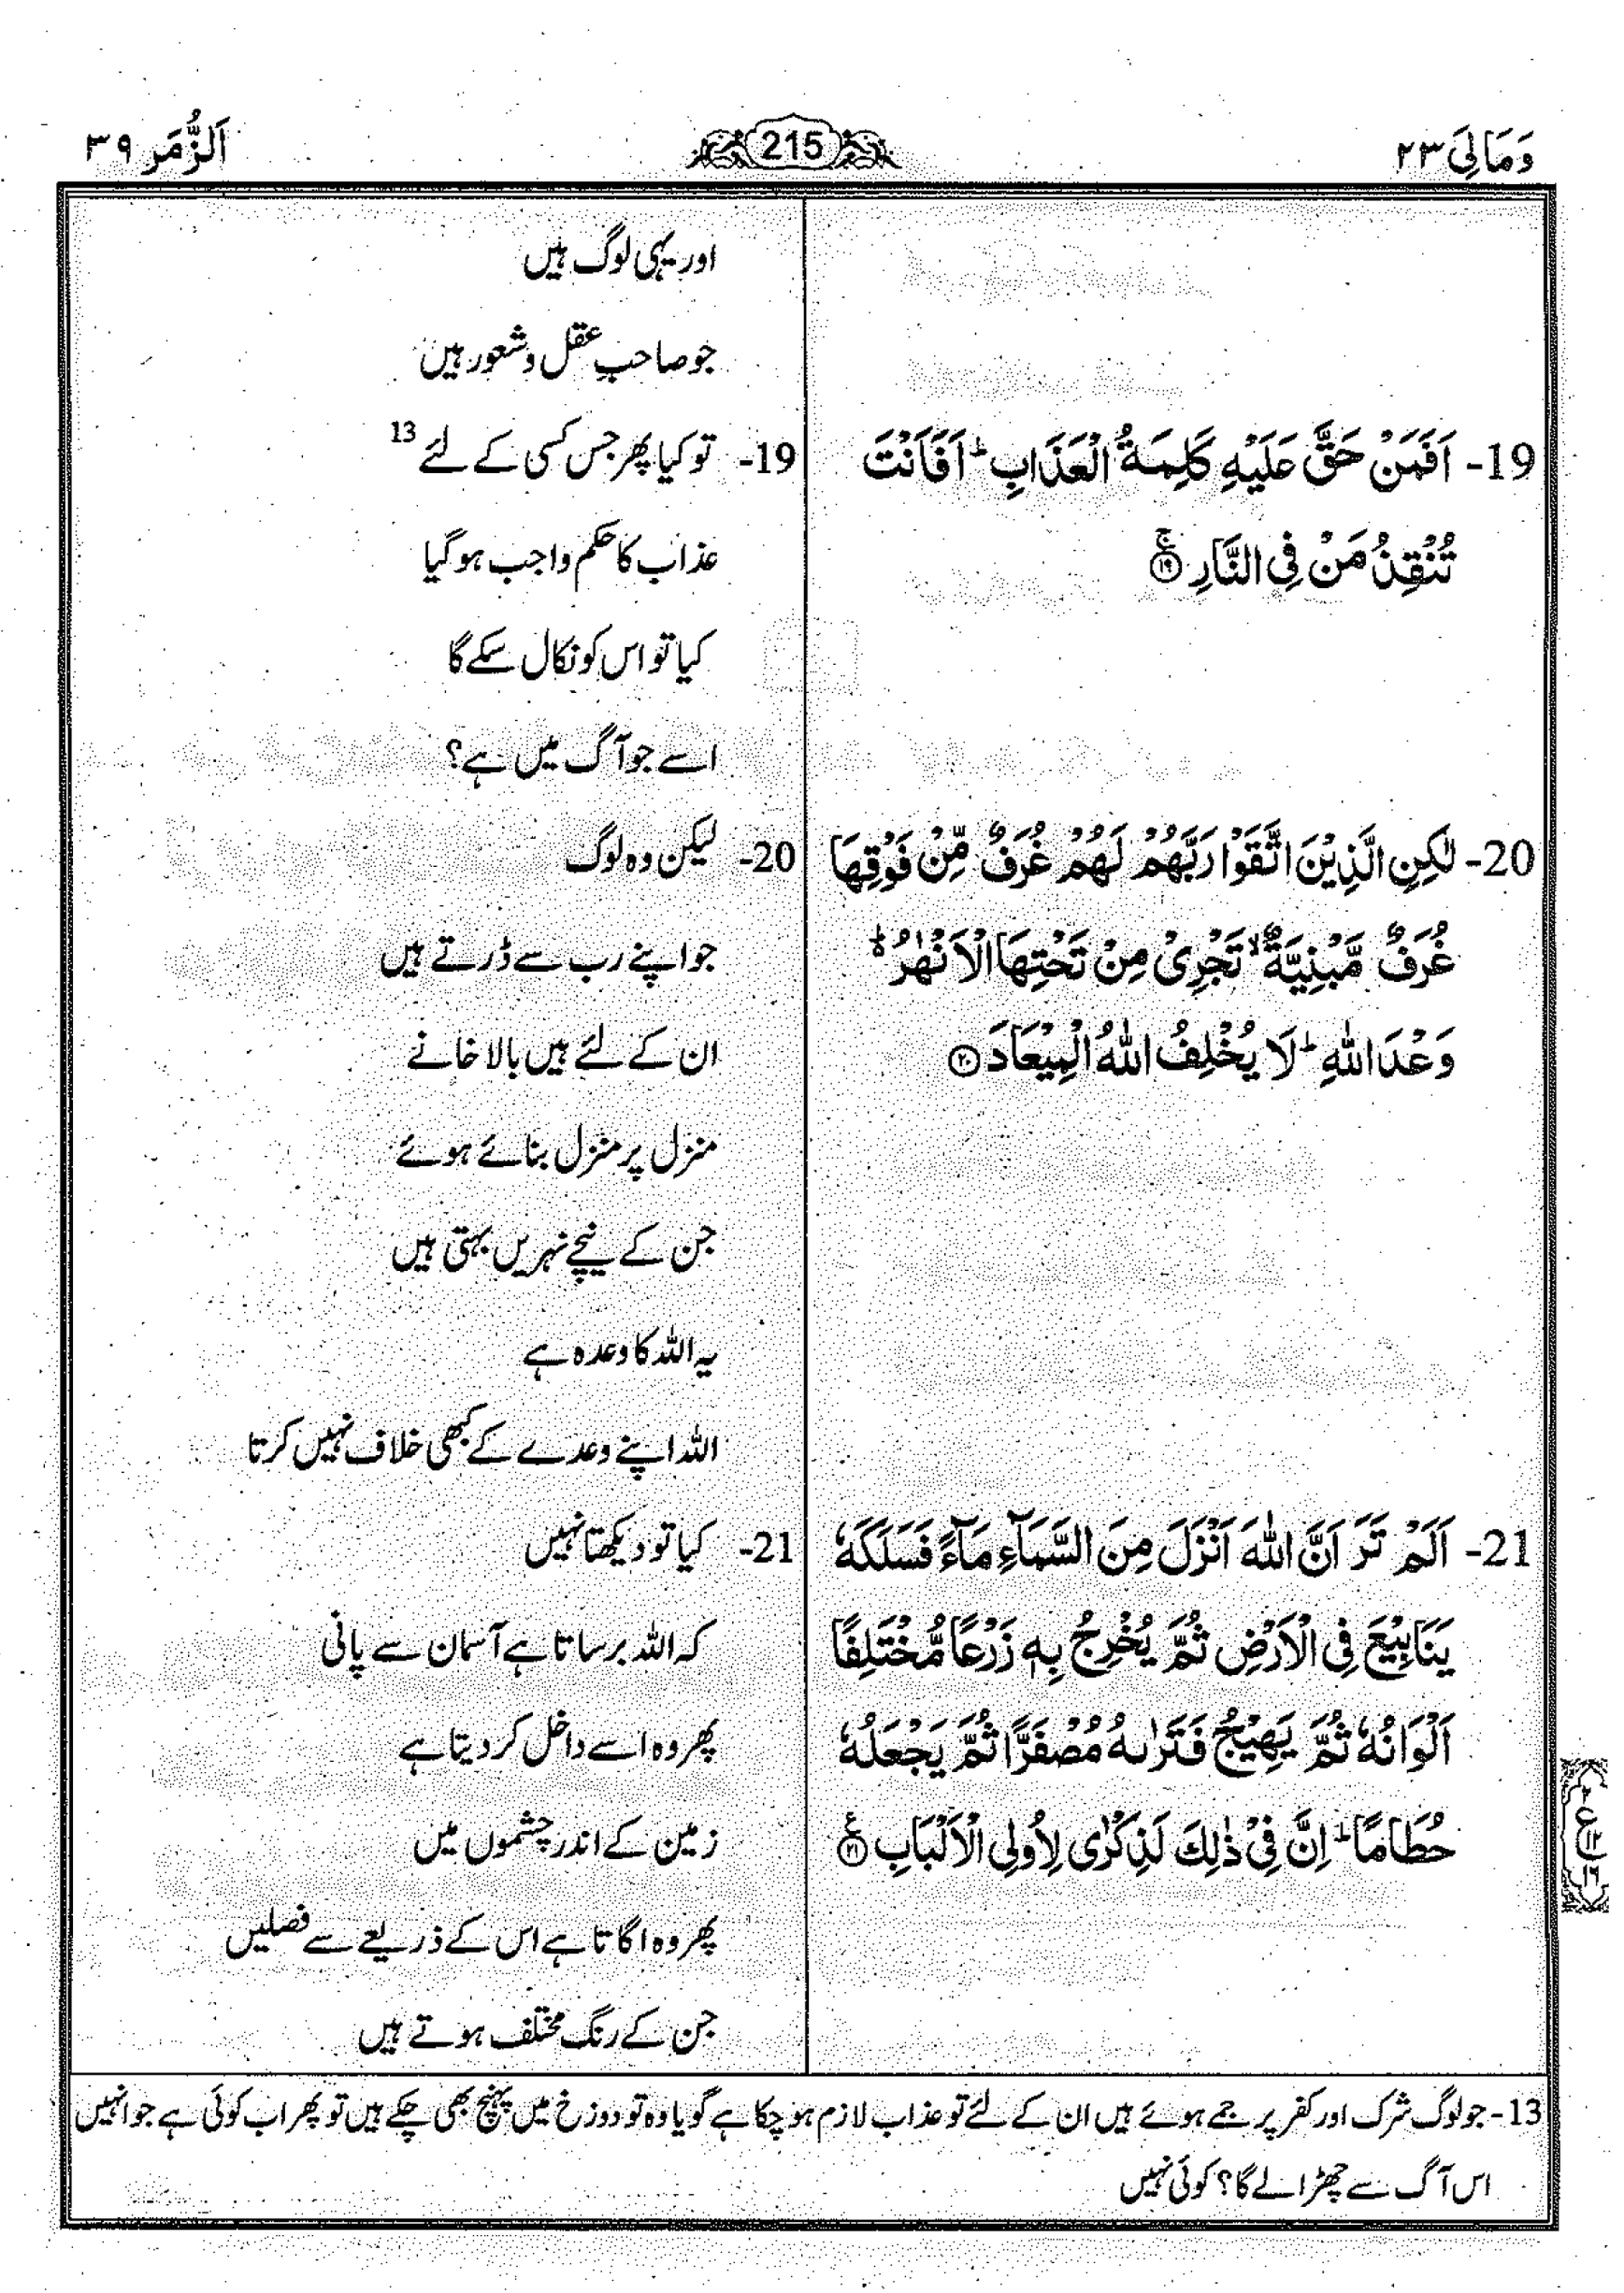 وَمَالِیَ ۲۳
215
اَلزُّمَر ۳۹
اور یہی لوگ ہیں
جو صاحبِ عقل و شعور ہیں
19- اَفَمَنْ حَقَّ عَلَیْهِ کَلِمَةُ الْعَذَابِ ؕ اَفَاَنْتَ
تُنْقِذُ مَنْ فِی النَّارِ ۚ﴿۱۹﴾
19- تو کیا پھر جس کسی کے لئے 13
عذاب کا حکم واجب ہو گیا
کیا تو اس کو نکال سکے گا
اسے جو آگ میں ہے؟
20- لٰکِنِ الَّذِیْنَ اتَّقَوْا رَبَّهُمْ لَهُمْ غُرَفٌ مِّنْ فَوْقِهَا
غُرَفٌ مَّبْنِیَّةٌ ۙ تَجْرِیْ مِنْ تَحْتِهَا الْاَنْهٰرُ ۬ؕ
وَعْدَ اللّٰهِ ؕ لَا یُخْلِفُ اللّٰهُ الْمِیْعَادَ ﴿۲۰﴾
20- لیکن وہ لوگ
جو اپنے رب سے ڈرتے ہیں
ان کے لئے ہیں بالا خانے
منزل پر منزل بنائے ہوئے
جن کے نیچے نہریں بہتی ہیں
یہ اللہ کا وعدہ ہے
اللہ اپنے وعدے کے کبھی خلاف نہیں کرتا
21- اَلَمْ تَرَ اَنَّ اللّٰهَ اَنْزَلَ مِنَ السَّمَآءِ مَآءً فَسَلَکَهٗ
یَنَابِیْعَ فِی الْاَرْضِ ثُمَّ یُخْرِجُ بِهٖ زَرْعًا مُّخْتَلِفًا
اَلْوَانُهٗ ثُمَّ یَهِیْجُ فَتَرٰىهُ مُصْفَرًّا ثُمَّ یَجْعَلُهٗ
حُطَامًا ؕ اِنَّ فِیْ ذٰلِكَ لَذِکْرٰی لِاُولِی الْاَلْبَابِ ﴿۲۱﴾
21- کیا تو دیکھتا نہیں
کہ اللہ برساتا ہے آسمان سے پانی
پھر وہ اسے داخل کر دیتا ہے
زمین کے اندر چشموں میں
پھر وہ اگاتا ہے اس کے ذریعے سے فصلیں
جن کے رنگ مختلف ہوتے ہیں
13- جو لوگ شرک اور کفر پر جمے ہوئے ہیں ان کے لئے تو عذاب لازم ہو چکا ہے گویا وہ تو دوزخ میں پہنچ بھی چکے ہیں تو پھر اب کوئی ہے جو انہیں
اس آگ سے چھڑا لے گا؟ کوئی نہیں